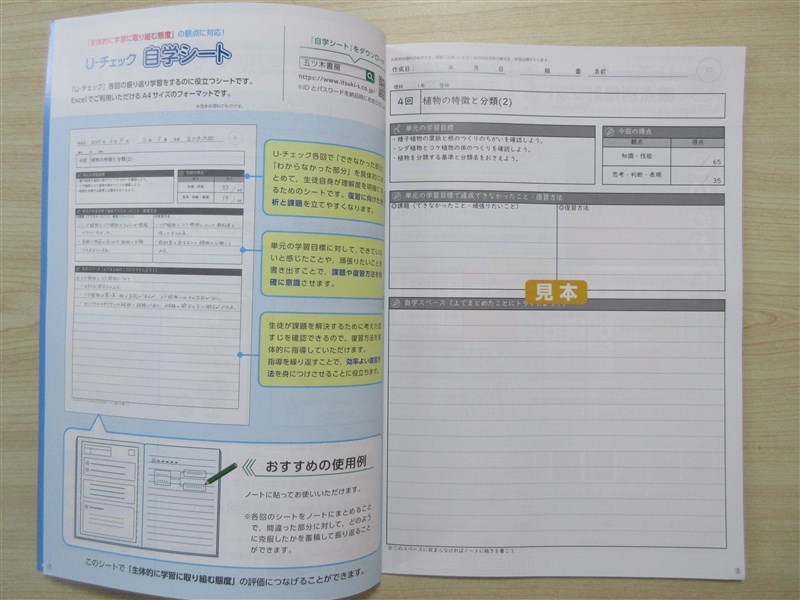 「主体的に学習に取り組む態度」の観点に対応!
U-チェック 自学シート
「U-チェック」各回の振り返り学習をするのに役立つシートです。
Excelでご利用いただけるA4サイズのフォーマットです。
「自学シート」をダウンロー
五ツ木書房
https://www.itsuki-s.co.jp/
※IDとパスワードを納品時に
U-チェック各回で「できなかった部分」
「わからなかった部分」を具体的にま
とめて、生徒自身が理解度を明確にす
るためのシートです。復習に向けた分
析と課題を立てやすくなります。
単元の学習目標に対して、できていな
いと感じたことや、頑張りたいことを
書き出すことで、課題や復習方法を明
確に意識させます。
生徒が課題を解決するために考えた道
すじを確認できるので、復習方法を具
体的に指導していただけます。
指導を繰り返すことで、効率よい復習方
法を身につけさせることに役立ちます。
おすすめの使用例
ノートに貼ってお使いいただけます。
※各回のシートをノートにまとめること
で、間違った部分に対して、どのよう
に克服したかを蓄積して振り返ること
ができます。
このシートで「主体的に学習に取り組む態度」の評価につなげることができます。
作成日: 年 月 日 組 番 名前
理科 1年
4回 植物の特徴と分類(2)
単元の学習目標
・種子植物の葉脈と根のつくりのちがいを確認しよう。
・シダ植物とコケ植物の体のつくりを確認しよう。
・植物を分類する基準と分類名をおさえよう。
今回の得点
観点 得点
知識・技能 /65
思考・判断・表現 /35
単元の学習目標で達成できなかったこと・復習方法
◎課題(できなかったこと・頑張りたいこと)
◎復習方法
見本
自学スペース(上でまとめたことにトライ
※このスペースに収まらなければノートに続きを書こう